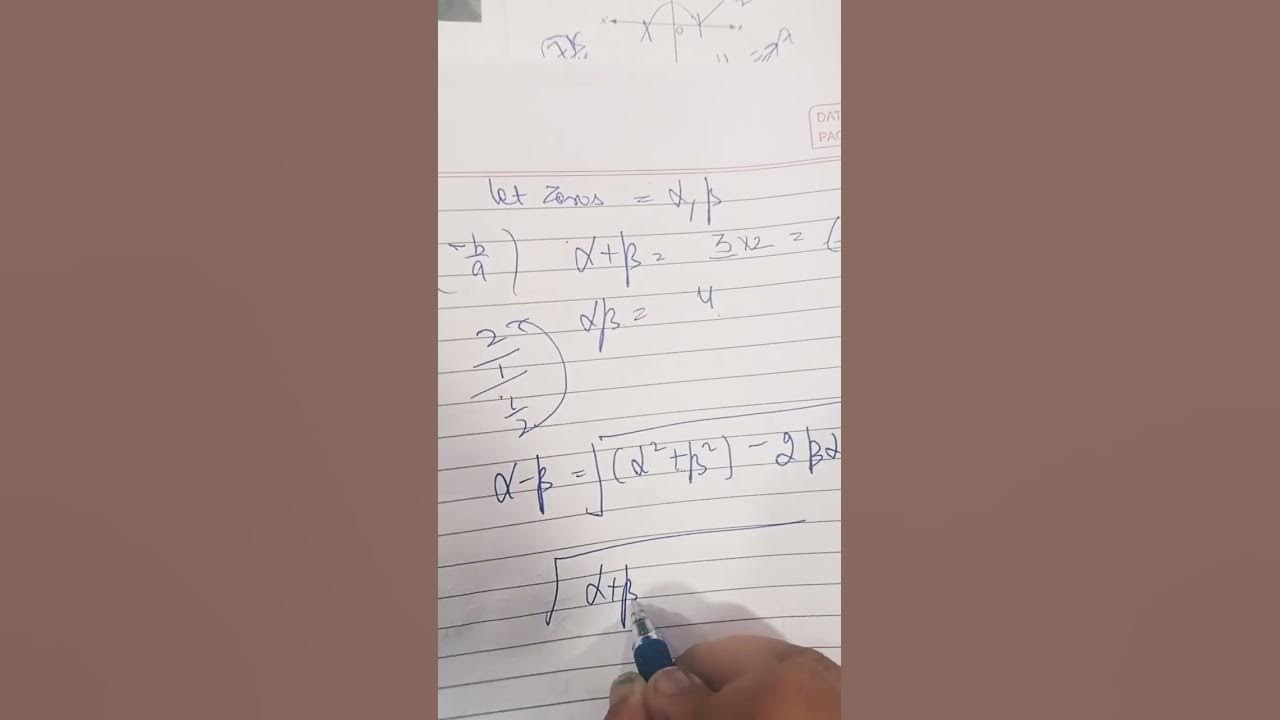 DAT
PAG
let zeros = α, β
-b/a ) α+β = 3×2 = (
αβ = 4
2
1
1/2
α-β = √(α²+β²) - 2βα
√α+β